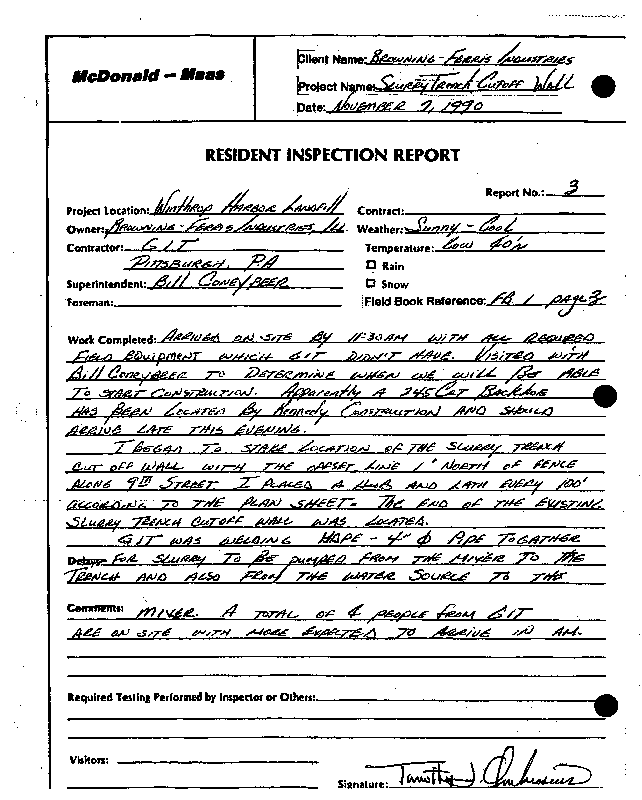 McDonald - Maas
Client Name: Browning-Ferris Industries
Project Name: Slurry Trench Cutoff Wall
Date: November 7, 1990
RESIDENT INSPECTION REPORT
Report No.: 3
Project Location: Winthrop Harbor Landfill
Contract:
Owner: Browning-Ferris Industries, Ill
Weather: Sunny - Cool
Contractor: GIT
Temperature: Low 40's
Pittsburgh, PA
Rain
Superintendent: Bill Coneybeer
Snow
Foreman:
Field Book Reference: FB 1 page 3
Work Completed: Arrived on site by 11:30 AM with all required
field equipment which GIT didn't have. Visited with
Bill Coneybeer to determine when we will be able
to start construction. Apparently a 245 Cat Backhoe
has been located by Kennedy Construction and should
arrive late this evening.
I began to stake location of the slurry trench
cut off wall with the offset line 1' north of fence
along 9th Street. I placed a hub and lath every 100'
according to the plan sheet. The end of the existing
slurry trench cutoff wall was located.
GIT was welding HDPE - 4" Φ pipe together
Delays: for slurry to be pumped from the mixer to the
trench and also from the water source to the
Comments: mixer. A total of 4 people from GIT
are on site with more expected to arrive in AM.
Required Testing Performed by Inspector or Others:
Visitors:
Signature: Timothy J.